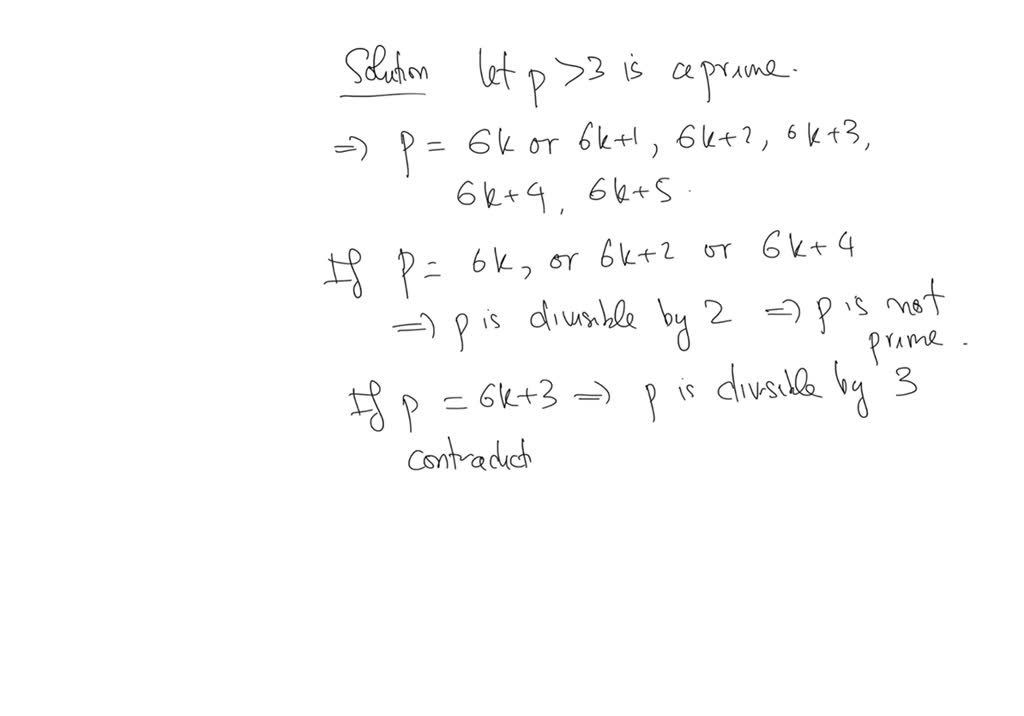 Solution let p > 3 is a prime.
⇒ p = 6k or 6k+1, 6k+2, 6k+3,
6k+4, 6k+5.
If p = 6k, or 6k+2 or 6k+4
⇒ p is divisible by 2 ⇒ p is not
prime.
If p = 6k+3 ⇒ p is divisible by 3
contradict